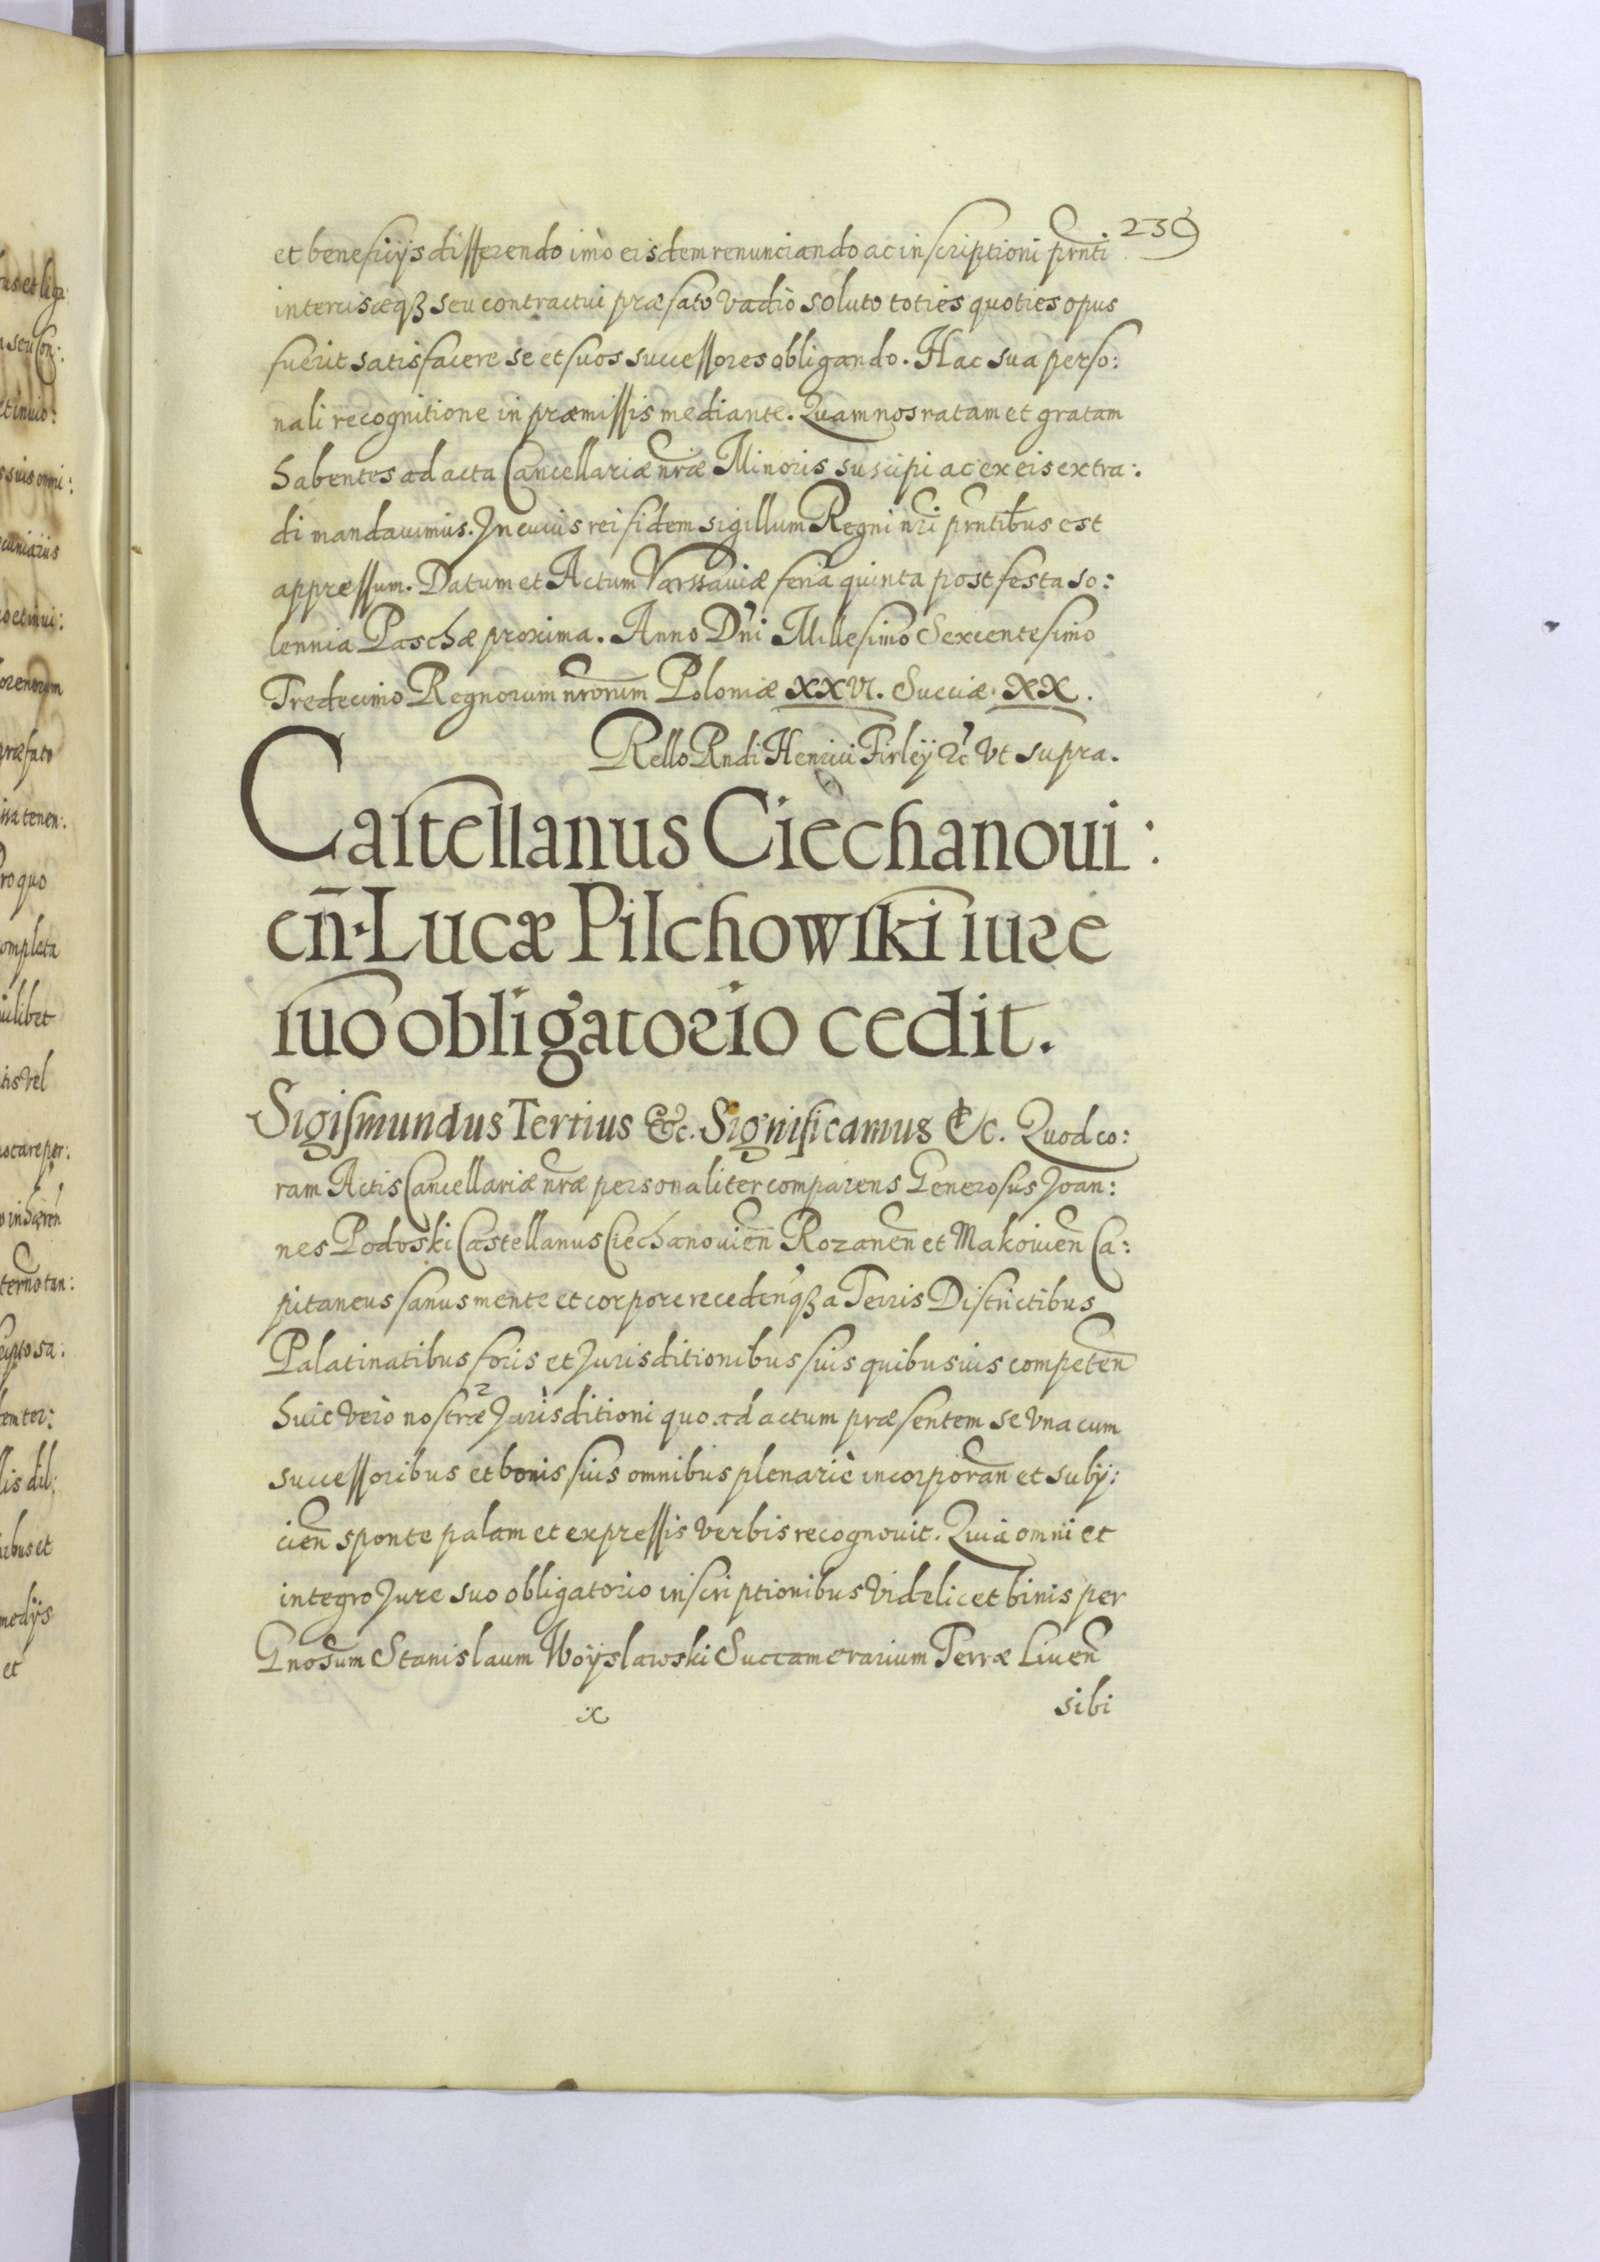 239
et beneficijs differendo imò eisdem renunciando ac inscriptioni prnti
intercisæqꝫ seu contractui præfato vadio soluto toties quoties opus
fuerit satisfacere se et suos successores obligando. Hac sua perso:
nali recognitione in præmissis mediante. Quam nos ratam et gratam
habentes ad acta Cancellariæ nræ Minoris suscipi ac ex eis extra:
di mandauimus. In cuius rei fidem sigillum Regni nri prntibus est
appressum. Datum et Actum Varssauiæ feria quinta post festa so:
lennia Paschæ proxima. Anno Dni Millesimo Sexcentesimo
Tredecimo Regnorum nrorum Poloniæ XXVI. Sueciæ. XX.
Rello Rndi Henrici Firleÿ &c Vt supra.
Castellanus Ciechanoui:
en̄. Lucæ Pilchowski iure
suo obligatorio cedit.
Sigismundus Tertius &c. Significamus &c. Quod co:
ram Actis Cancellariæ nræ personaliter comparens Generosus Joan:
nes Podoski Castellanus Ciechanouien̄ Rozanen̄ et Makouien̄ Ca:
pitaneus sanus mente et corpore recedenqꝫ a Terris Districtibus
Palatinatibus foris et Jurisditionibus suis quibusuis competen̄
huic verò nostræ Jurisditioni quo ad actum præsentem se vna cum
successoribus et bonis suis omnibus plenariè incorporan̄ et subij:
cien̄ sponte palam et expressis verbis recognouit. Quia omni et
integro Jure suo obligatorio inscriptionibus videlicet binis per
Gnosum Stanislaum Woÿslawski Succamerarium Terræ Liuen̄
sibi